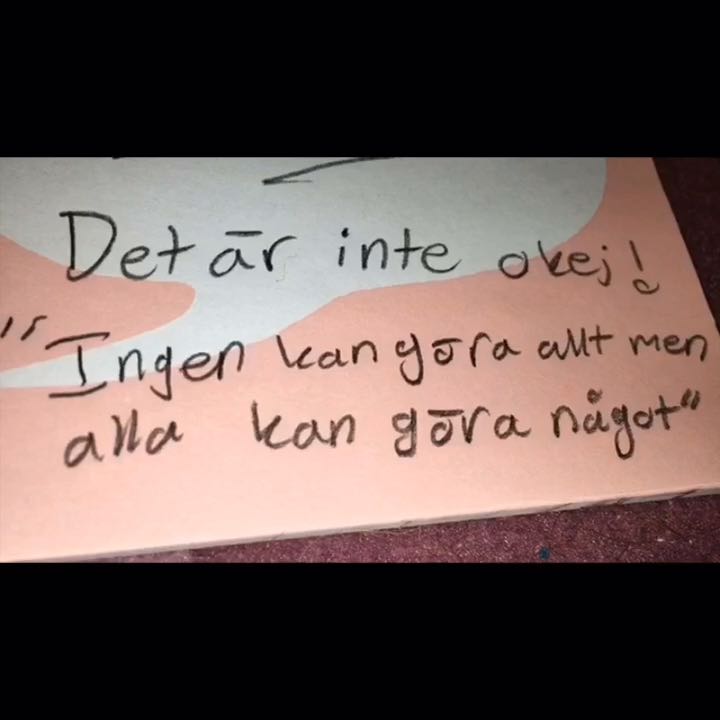 Det är inte okej!
"Ingen kan göra allt men
alla kan göra något"